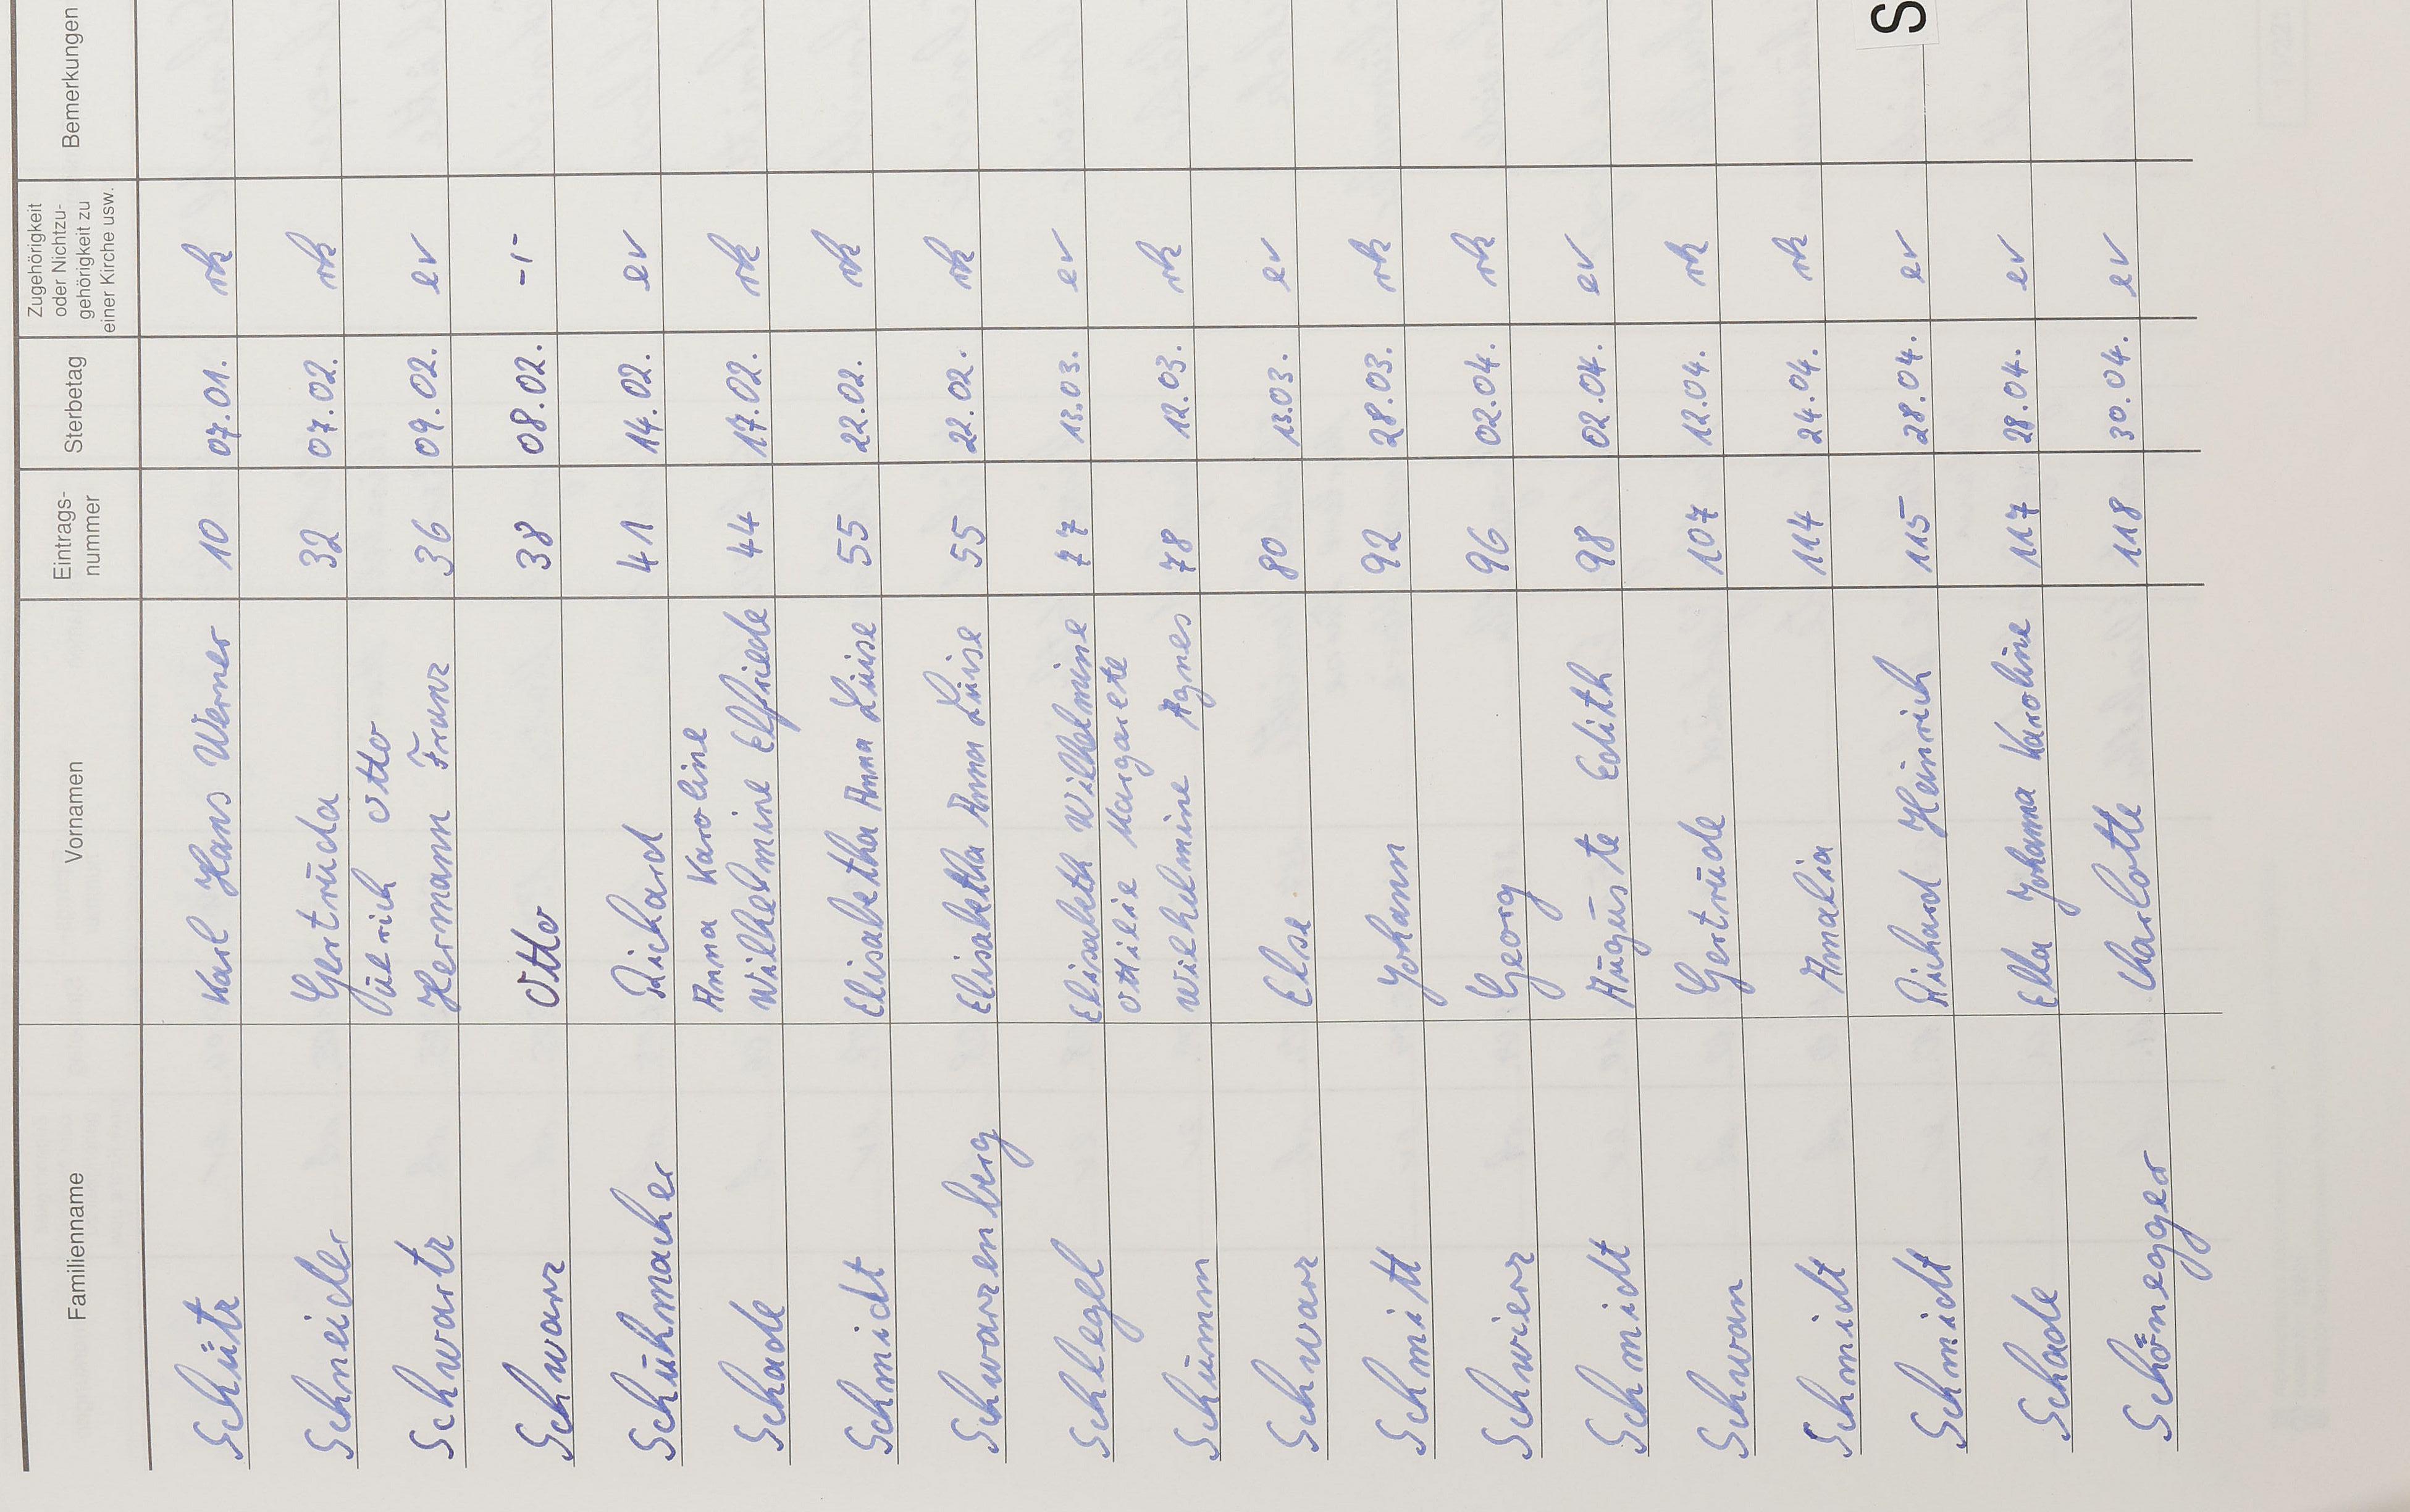 Familienname Vornamen Eintrags- nummer Sterbetag Zugehörigkeit oder Nichtzu- gehörigkeit zu einer Kirche usw. Bemerkungen
Schütz Karl Hans Werner 10 07.01. rk
Schneider Gertruda 32 07.02. rk
Ülrich Otto
Schwartz Hermann Franz 36 09.02. ev
Schwarz Otto 38 08.02. -,-
Schuhmacher Richard 41 14.02. ev
Anna Karoline
Schade Wilhelmine Elfriede 44 17.02. rk
Schmidt Elisabetha Anna Luise 55 22.02. rk
Schwarzenberg Elisabetha Anna Luise 55 22.02. rk
Schlegel Elisabeth Wilhelmine 77 13.03. ev
Ottilie Margarete
Schumm Wilhelmine Agnes 78 12.03. rk
Schwarz Else 80 13.03. ev
Schmitt Johann 92 28.03. rk
Schwierz Georg 96 02.04. rk
Schmidt Auguste Edith 98 02.04. ev
Schwan Gertrude 107 12.04. rk
Schmidt Amalia 114 24.04. rk
Schmidt Richard Heinrich 115 28.04. ev
S
Schade Ella Johanna Karoline 117 28.04. ev
Schönegger Charlotte 118 30.04. ev